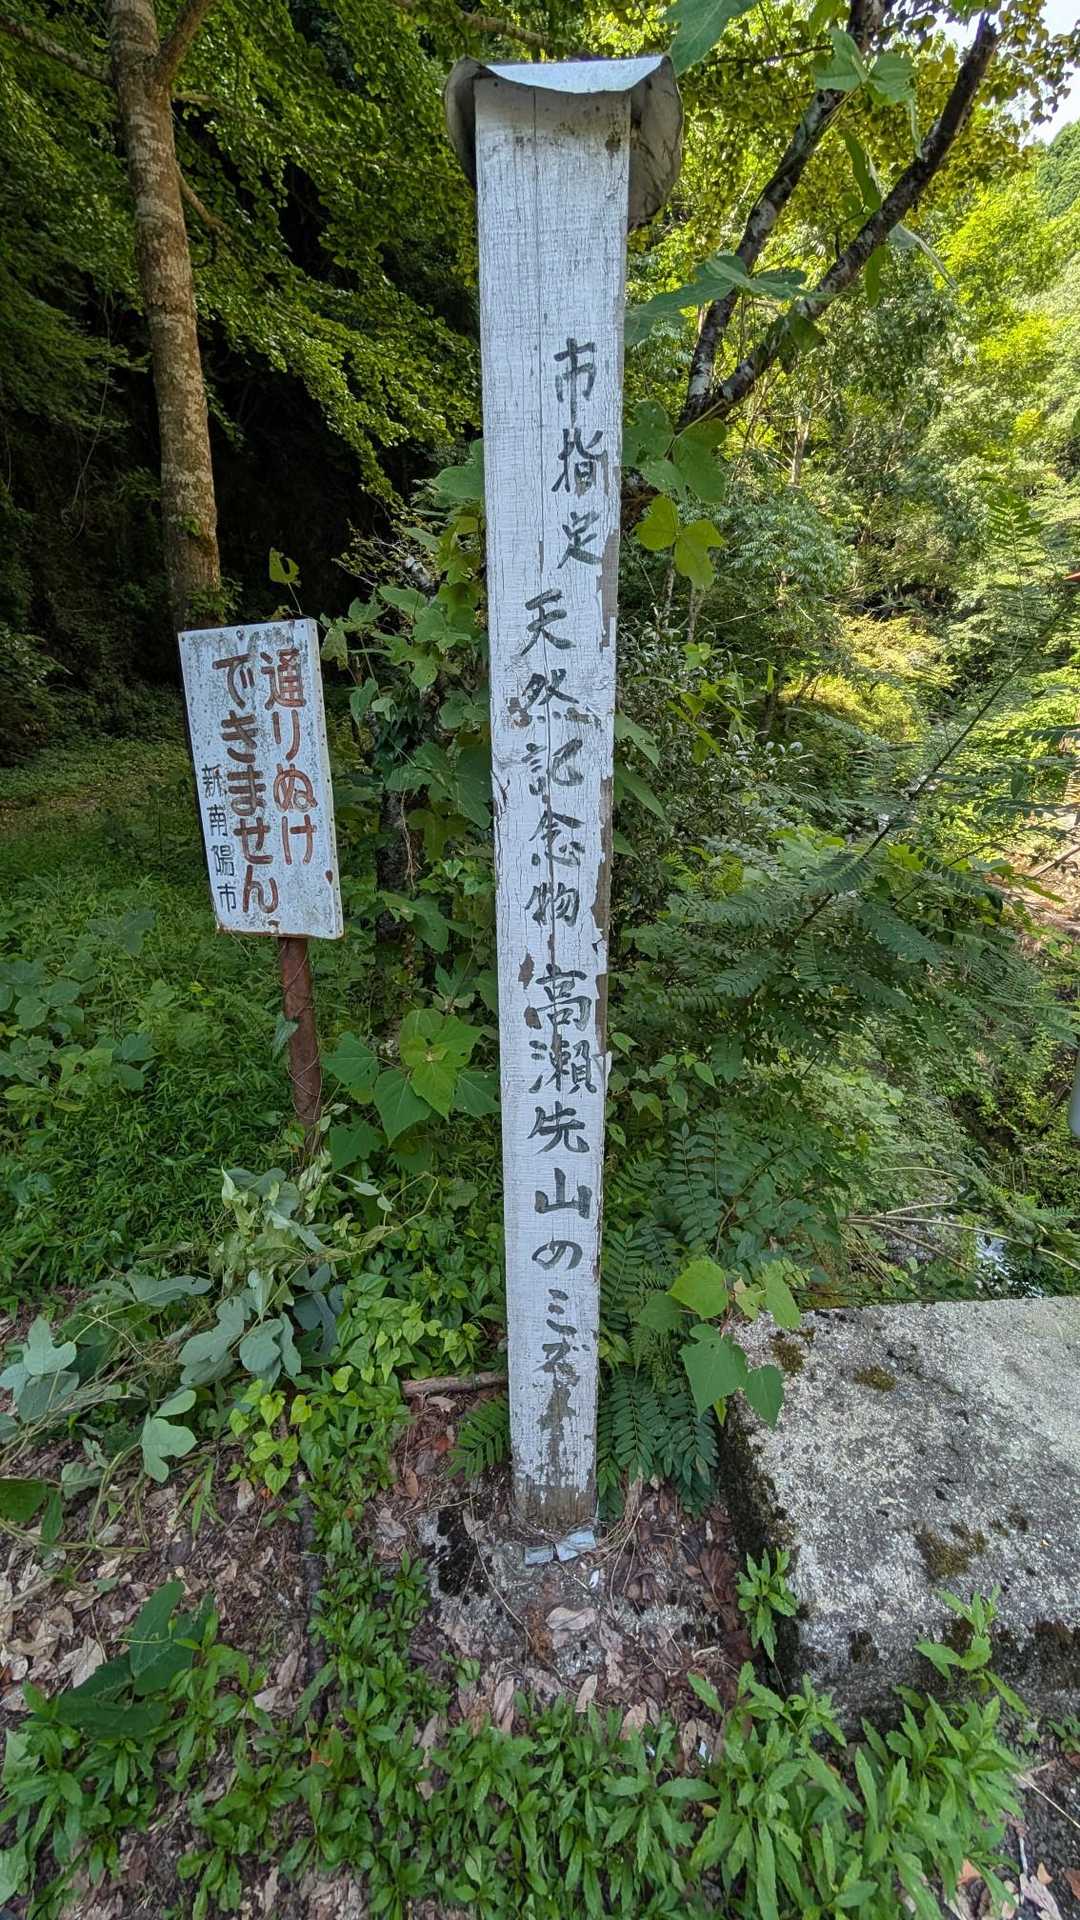 市指定
天然記念物 高瀬先山のミズナ
通りぬけ
できません
新南陽市